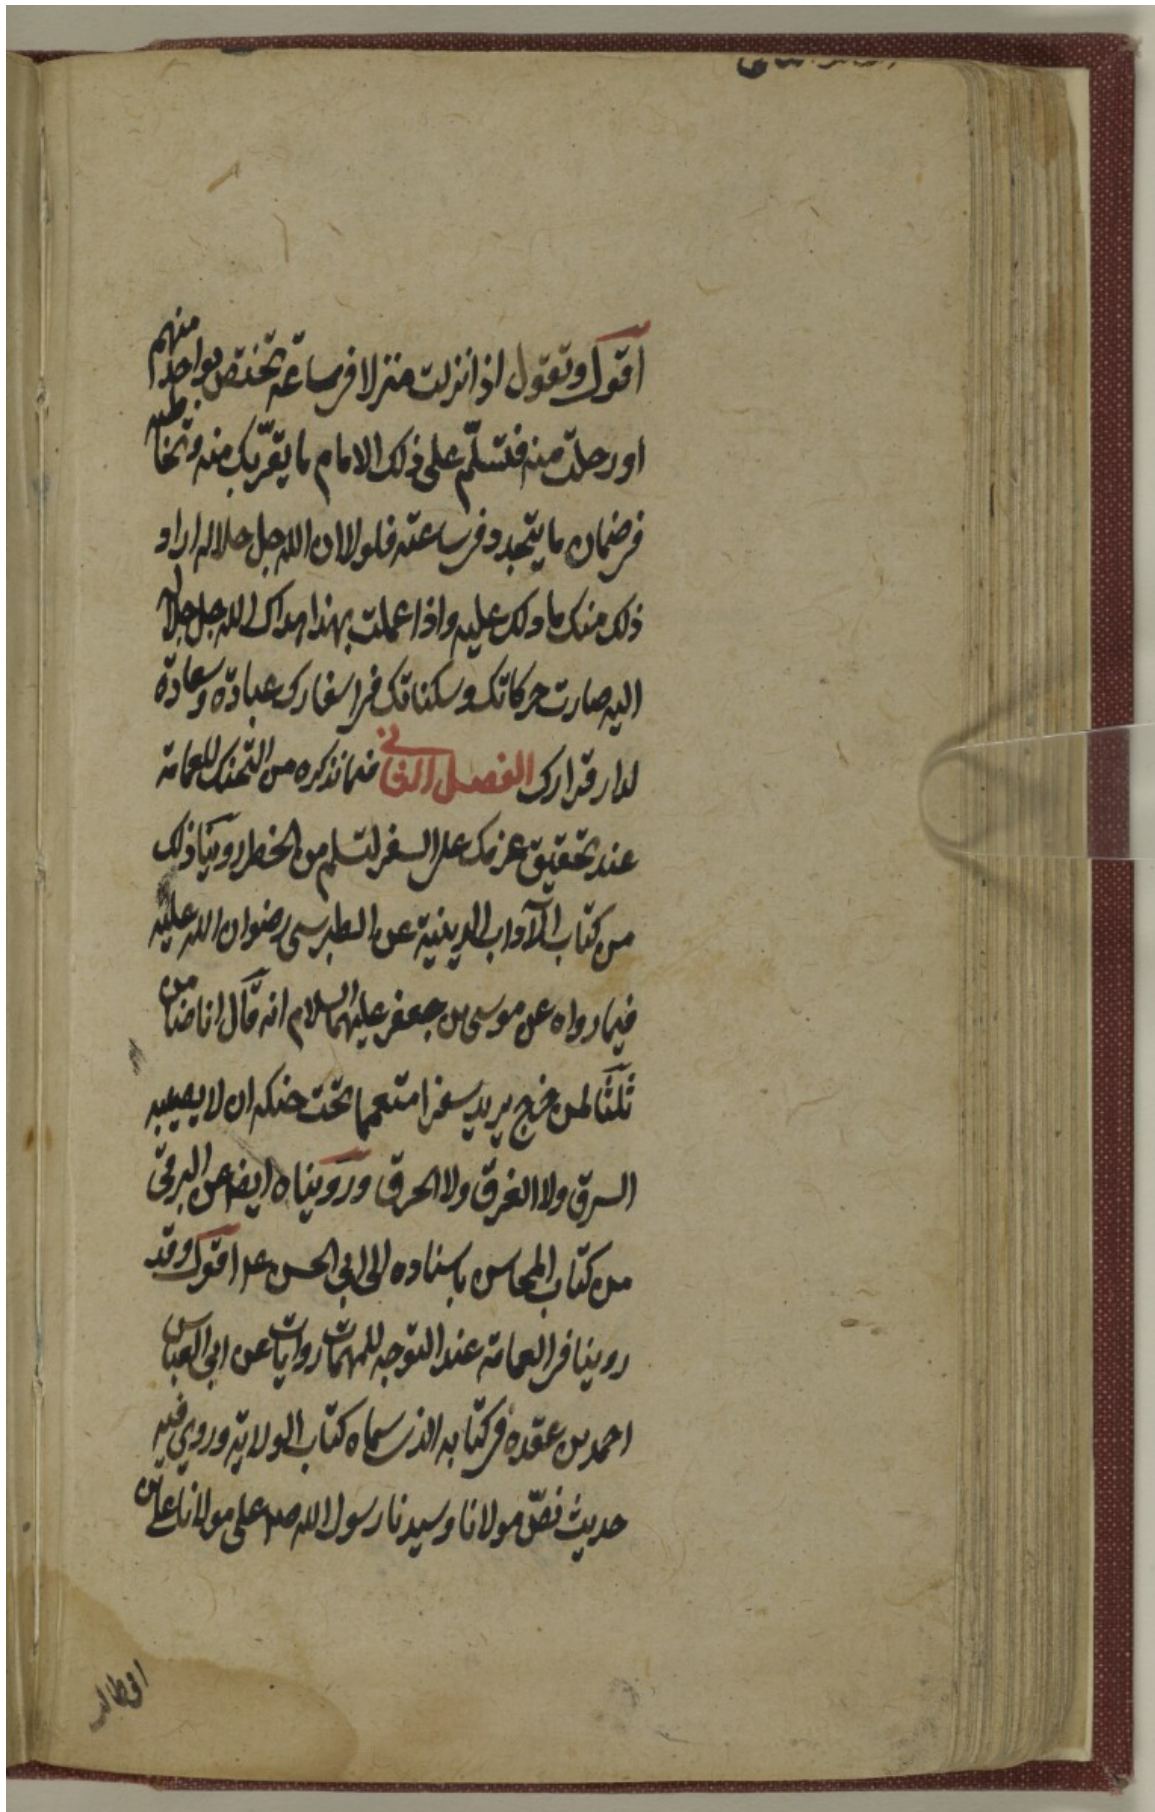 أقول وتقول اذا نزلت منزلا فى ساعة تختص بواحد منهم
او رحلت منه فتسلّم على ذلك الامام ما يقرّبك منه وتخاطبه
فى ضمان ما يتجدد فى ساعته فلولا ان الله جل جلاله اراد
ذلك منك ما دلك عليه واذا عملت بهذا هداك الله جل جلاله
اليه صارت حركاتك وسكناتك فى اسفارك عبادة وسعادة
لدار قرارك الفصل الثانى فيما نذكره من التحنك للعمامة
عند تحقيق عزمك على السفر لتسلم من الخطر روينا ذلك
من كتاب الآداب الدينية عن الطبرسى رضوان الله عليه
فيما رواه عن موسى بن جعفر عليهما السلام انه قال انا ضامن
ثلثا لمن خرج يريد سفرا متعمما تحت حنكه ان لا يصيبه
السرق ولا الغرق ولا الحرق ورويناه ايضا عن البرقى
من كتاب المحاسن باسناده الى ابى الحسن ع اقول وقد
روينا فى العمامة عند التوجه للمهمات روايات عن ابى العباس
احمد بن عقده فى كتابه الذى سماه كتاب الولاية وروى فيه
حديث نصّ مولانا وسيدنا رسول الله صلم على مولانا على بن
ابى طالب